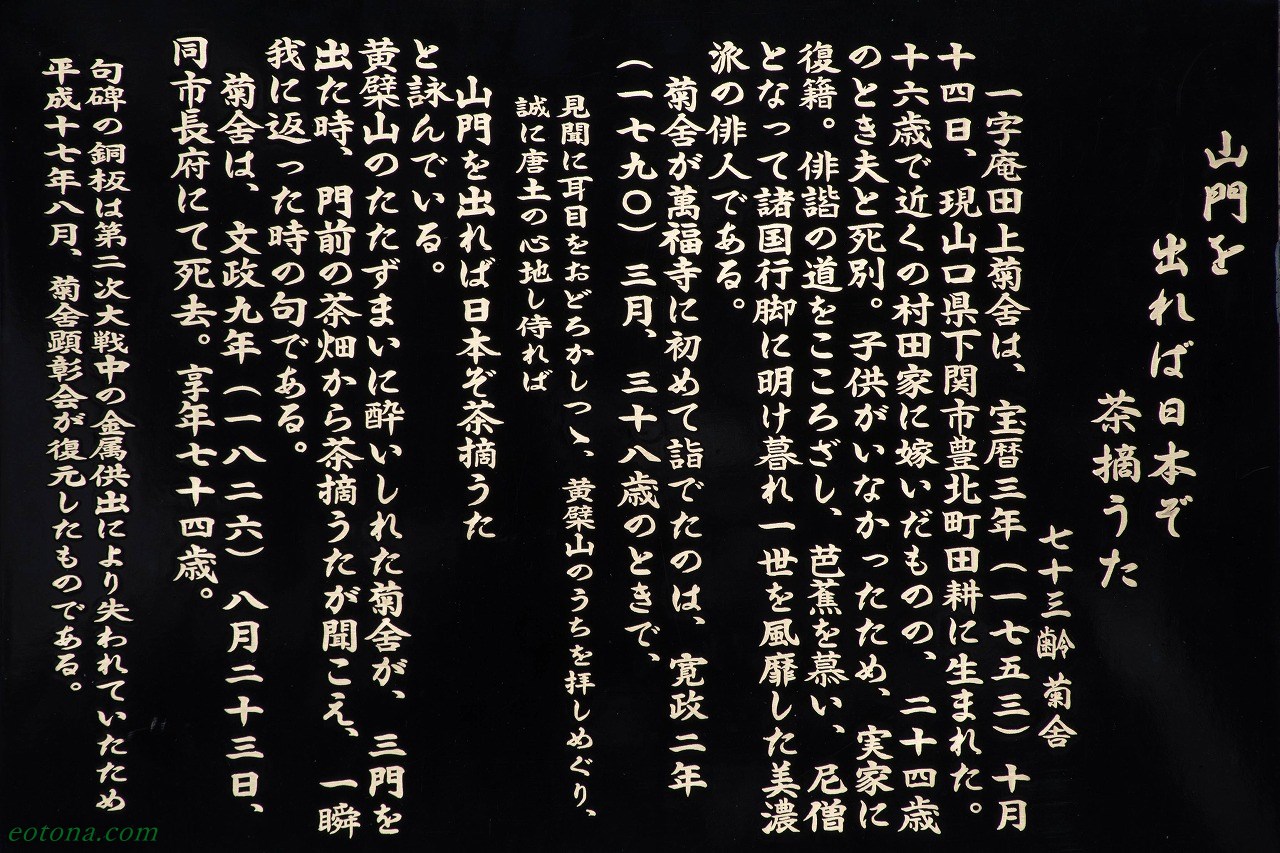 山門を
出れば日本ぞ
茶摘うた
七十三齢 菊舎
一字庵田上菊舎は、宝暦三年（一七五三）十月
十四日、現山口県下関市豊北町田耕に生まれた。
十六歳で近くの村田家に嫁いだものの、二十四歳
のとき夫と死別。子供がいなかったため、実家に
復籍。俳諧の道をこころざし、芭蕉を慕い、尼僧
となって諸国行脚に明け暮れ一世を風靡した美濃
派の俳人である。
菊舎が萬福寺に初めて詣でたのは、寛政二年
（一七九〇）三月、三十八歳のときで、
見聞に耳目をおどろかしつゝ、黄檗山のうちを拝しめぐり、
誠に唐土の心地し侍れば
山門を出れば日本ぞ茶摘うた
と詠んでいる。
黄檗山のたたずまいに酔いしれた菊舎が、三門を
出た時、門前の茶畑から茶摘うたが聞こえ、一瞬
我に返った時の句である。
菊舎は、文政九年（一八二六）八月二十三日、
同市長府にて死去。享年七十四歳。
句碑の銅板は第二次大戦中の金属供出により失われていたため
平成十七年八月、菊舎顕彰会が復元したものである。
eotona.com